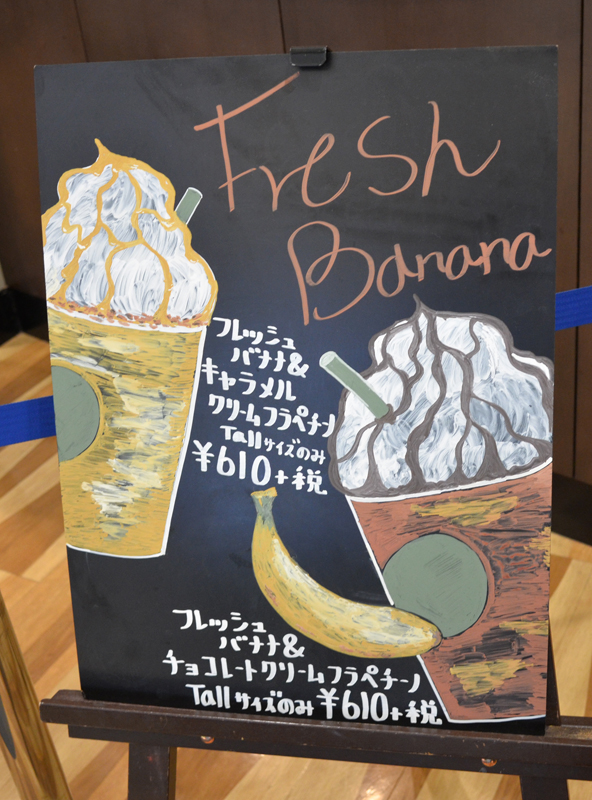 Fresh
Banana
フレッシュ
バナナ&
キャラメル
クリームフラペチーノ
Tallサイズのみ
¥610+税
フレッシュ
バナナ&
チョコレートクリームフラペチーノ
Tallサイズのみ ¥610+税